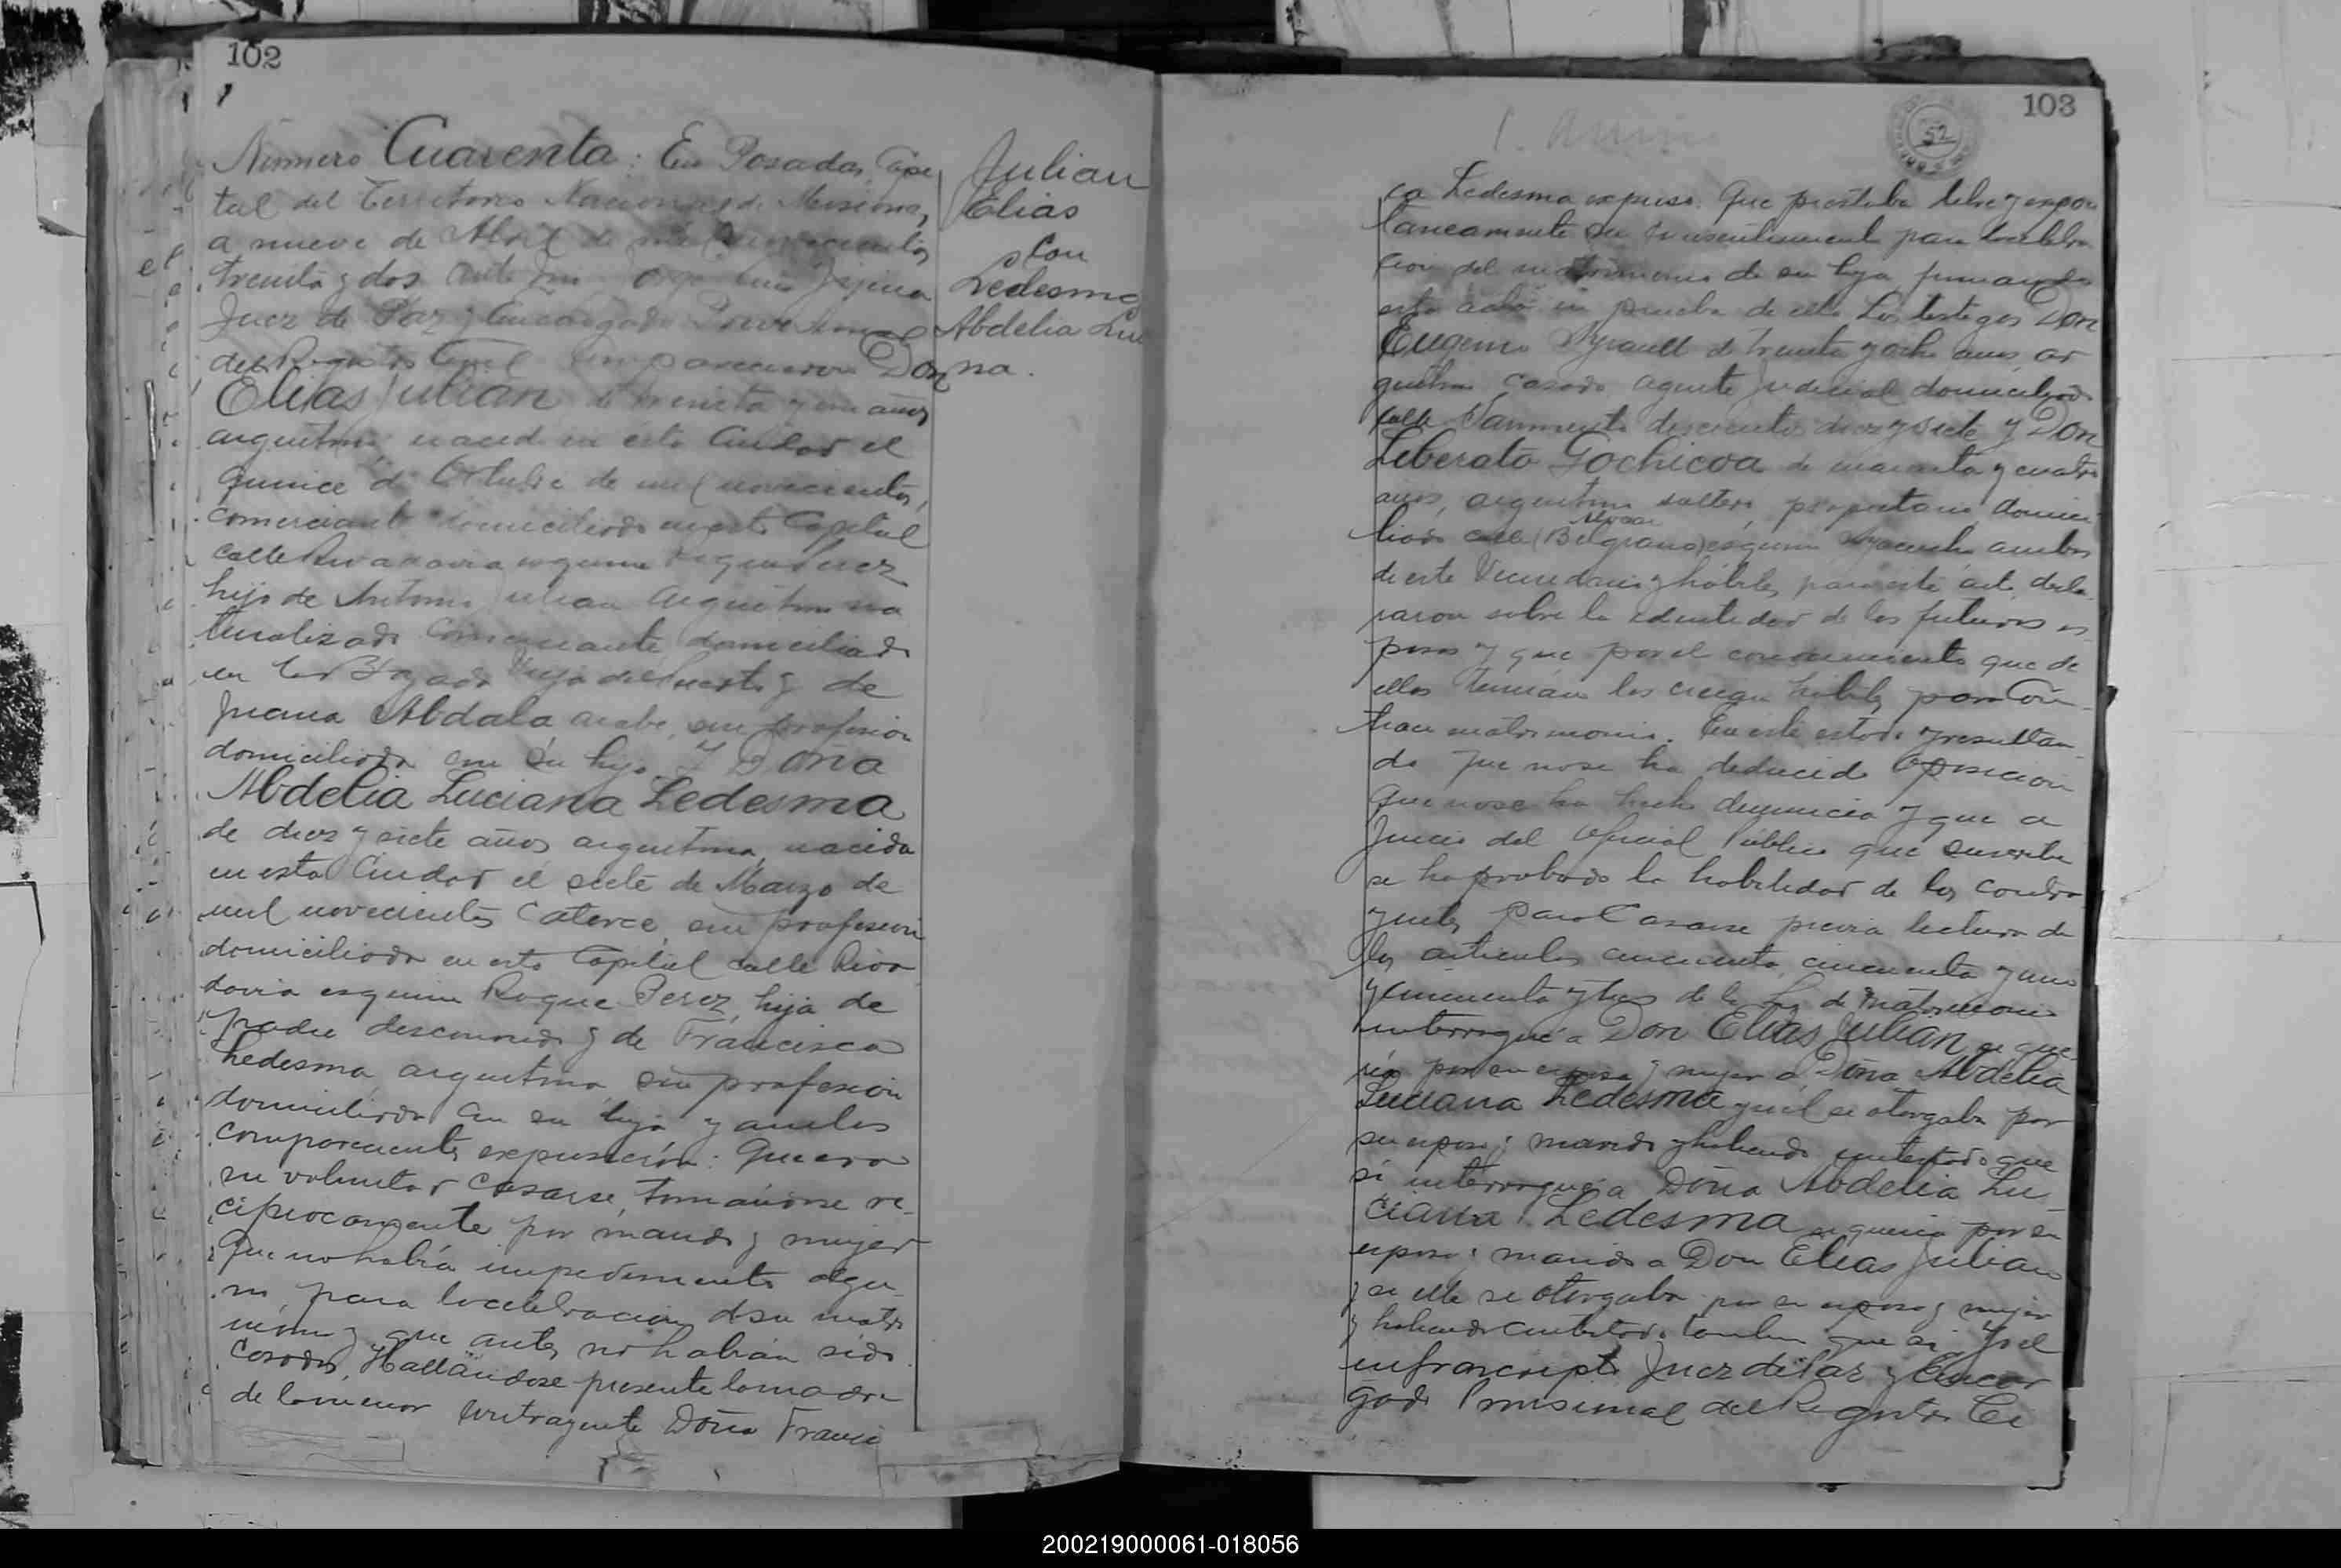 102
Número Cuarenta: En Posadas, Capi
tal del Territorio Nacional de Misiones,
a nueve de Abril de mil novecientos
treinta y dos ante mi
Juez de Paz y Encargado Provisional
del Registro Civil comparecieron Don
Elias Julian de treinta y un años
argentino, nacido en esta Ciudad el
quince de Octubre de mil novecientos,
comerciante domiciliado en esta Capital
calle Rivadavia esquina Roque Perez
hijo de Antonio Julian argentino na
turalizado comerciante domiciliado
en y de
Juana Abdala, arabe, sin profesion
domiciliada con su hijo Y Doña
Abdelia Luciana Ledesma
de diez y siete años argentina, nacida
en esta Ciudad el siete de Marzo de
mil novecientos catorce, sin profesion
domiciliada en esta Capital calle Riva
davia esquina Roque Perez, hija de
padre desconocido y de Francisca
Ledesma, argentina, sin profesion
domiciliada con su hija y ambos
comparecientes expusieron: Que era
su voluntad casarse, tomandose re-
ciprocamente por marido y mujer
Que no habia impedimento algu
no para la celebracion de su matri
monio y que antes no habian sido
casados. Hallandose presente la madre
de la menor contrayente Doña Franci
Julian
Elias
con
Ledesma
Abdelia Lu
na.
103
52
ca Ledesma expuso: Que prestaba libre y espon
taneamente su consentimiento para la celebra
cion del matrimonio de su hija firmando
esta acta en prueba de ello Los testigos Don
Eugenio de treinta y ocho años, ar
gentino casado agente judicial domiciliado
calle Sarmiento doscientos diez y siete y Don
Liberato Gochicoa de cuarenta y cuatro
años, argentino soltero, propietario domici
Alvear
liado calle (Belgrano) esquina Ayacucho ambos
de este Vecindario y hábiles para este acto, decla
raron sobre la identidad de los futuros es
posos y que por el conocimiento que de
ellos tenian los creian hábiles para con
traer matrimonio. En este estado y resultan
do que no se ha deducido oposicion
Que no se ha hecho denuncia y que a
juicio del Oficial Público que suscribe
se ha probado la habilidad de los contra
yentes para casarse previa lectura de
los articulos cincuenta, cincuenta y uno
y cincuenta y tres de la Ley de Matrimonio
interrogué a Don Elias Julian si que
ria por su esposa y mujer a Doña Abdelia
Luciana Ledesma y si él se otorgaba por
su esposo y marido y habiendo contestado que
si interrogué a Doña Abdelia Lu
ciana Ledesma si queria por su
esposo y marido a Don Elias Julian
y si ella se otorgaba por su esposa y mujer
y habiendo contestado tambien que si, Yo el
infrascripto Juez de Paz y Encar
gado Provisional del Registro Ci
200219000061-018056